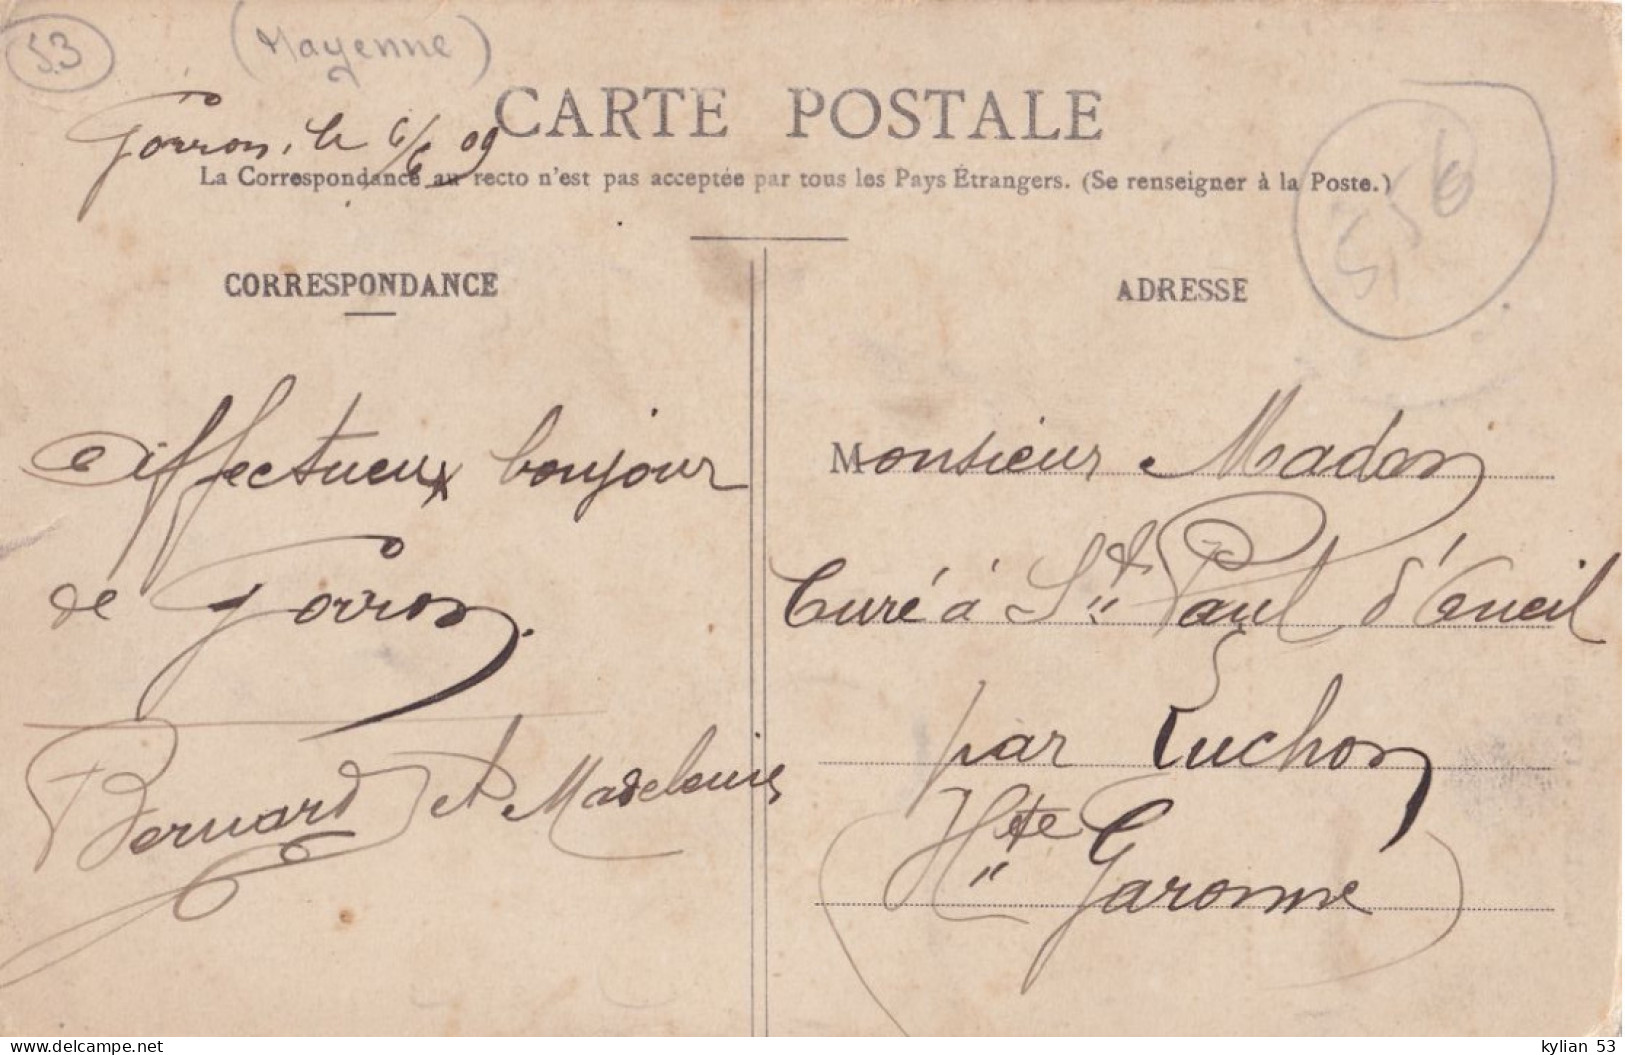 53
(Mayenne)
Gorron, le 6/6 09
CARTE POSTALE
La Correspondance au recto n'est pas acceptée par tous les Pays Étrangers. (Se renseigner à la Poste.)
556
CORRESPONDANCE
Affectueux bonjour
de Gorron.
Bernard et Madeleine
ADRESSE
Monsieur Madon
Curé à St Paul d'Oueil
par Luchon
Hte Garonne
kylian 53